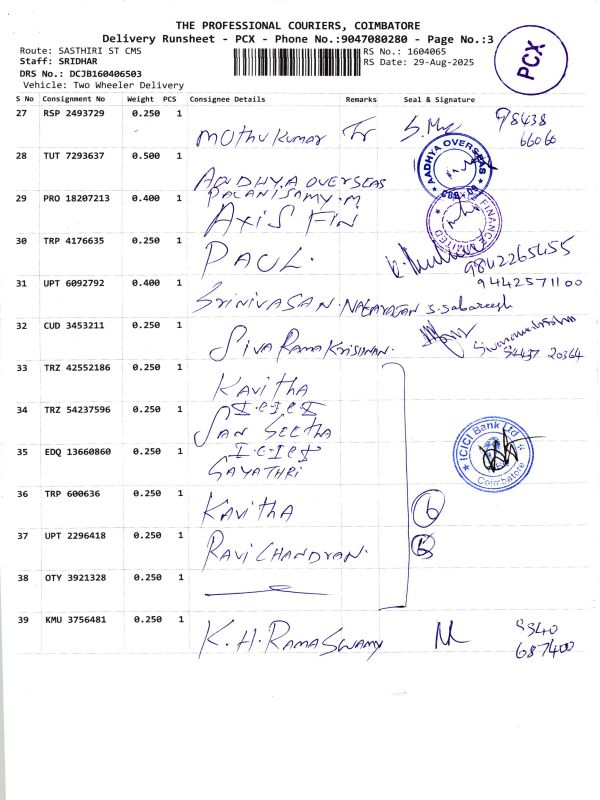 THE PROFESSIONAL COURIERS, COIMBATORE
Delivery Runsheet - PCX - Phone No.:9047080280 - Page No.:3
Route: SASTHIRI ST CMS
RS No.: 1604065
Staff: SRIDHAR
RS Date: 29-Aug-2025
DRS No.: DCJB160406503
Vehicle: Two Wheeler Delivery
PCX
S No Consignment No Weight PCS Consignee Details Remarks Seal & Signature
27 RSP 2493729 0.250 1
Mothu Kumar
98438
66060
28 TUT 7293637 0.500 1
AADHYA OVERSEAS
AADHYA OVERSEAS
29 PRO 18207213 0.400 1
PALANISAMY.M
AXIS FIN
FINANCE LIMITED
30 TRP 4176635 0.250 1
PAUL.
9842265455
31 UPT 6092792 0.400 1
9442571100
SRINIVASAN. NAGARAJAN S.Sabareesh
32 CUD 3453211 0.250 1
SIVA RAMA KRISHNAN.
54437 20364
33 TRZ 42552186 0.250 1
KAVITHA
ICICI
34 TRZ 54237596 0.250 1
JAN SEETHA
ICICI
35 EDQ 13660860 0.250 1
GAYATHRI
ICICI Bank Ltd
Coimbatore
36 TRP 600636 0.250 1
KAVITHA
6
37 UPT 2296418 0.250 1
RAVI CHANDRAN.
38 OTY 3921328 0.250 1
39 KMU 3756481 0.250 1
K.H.RAMASWAMY
9340
687400